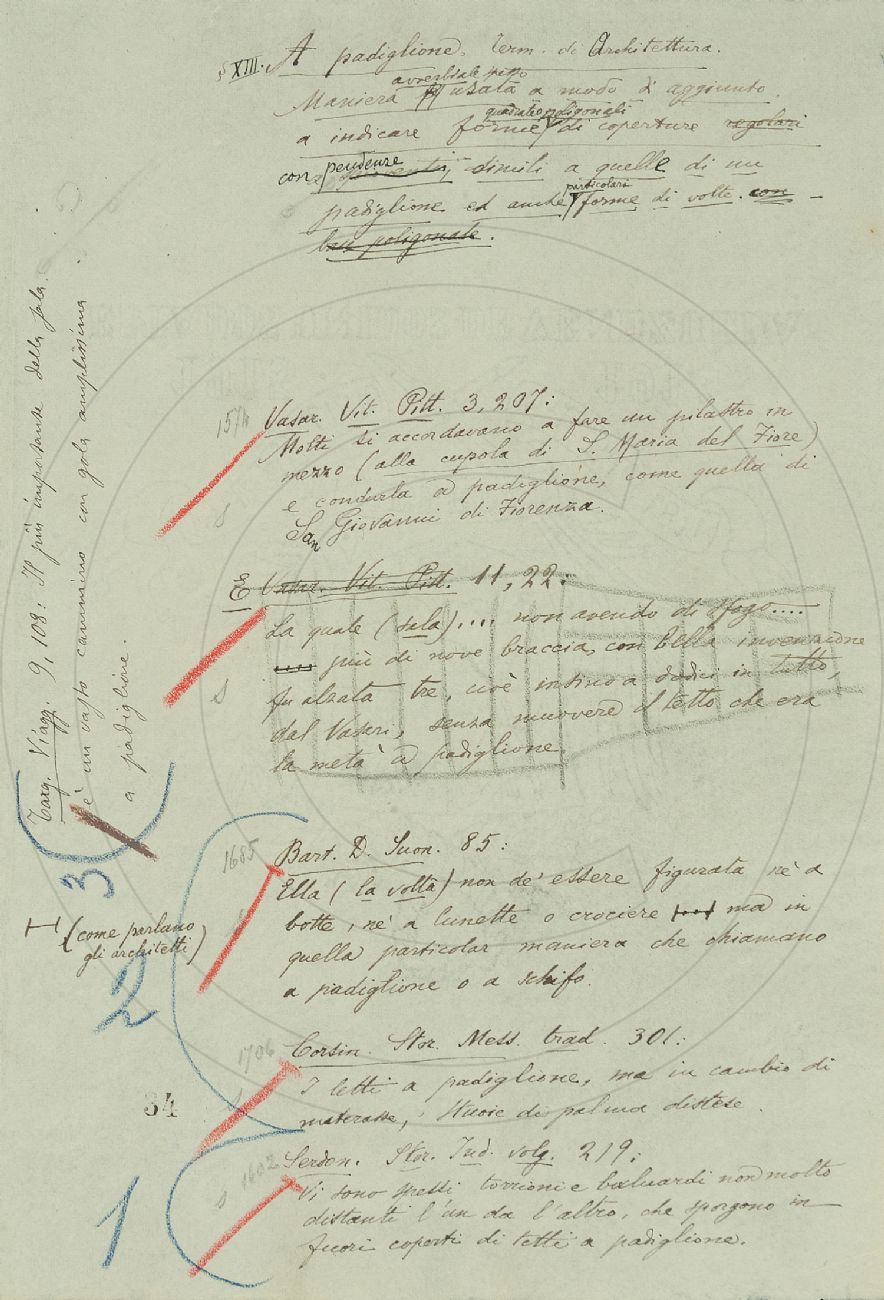 § XIII. A padiglione. Term. di Architettura.
avverbiale
Maniera usata a modo d'aggiunto
quadrate poligonali
a indicare forme di coperture regolari
con pendenze simili a quelle di un
particolari
padiglione ed anche forme di volte con
base poligonale.
1574
Vasar. Vit. Pitt. 3, 207:
Molti si accordavano a fare un pilastro in
mezzo (alla cupola di S. Maria del Fiore)
e condurla a padiglione, come quella di
s
San Giovanni di Fiorenza.
E Vasar. Vit. Pitt. 11, 22:
La quale (sala).... non avendo di sfogo....
più di nove braccia, con bella invenzione
s
fu alzata tre, cioè insino a dodici in tutto,
dal Vasari, senza muovere il tetto che era
la metà a padiglione.
Targ. Viagg. 9, 108: Il più importante della sala
è un vasto cammino con gola amplissima
a padiglione.
3
1685
Bart. D. Suon. 85:
Ella (la volta) non de' essere figurata nè a
botte, nè a lunette o crociere ma in
(come parlano
gli architetti)
quella particolar maniera che chiamano
a padiglione o a schifo.
2
1706
Corsin. Stor. Mess. trad. 301:
I letti a padiglione, ma in cambio di
materasse, stuoie di palma distese.
34
1602
Serdon. Stor. Ind. volg. 219:
s
Vi sono spessi torrioni e baluardi non molto
distanti l'un da l'altro, che sporgono in
fuori coperti di tetti a padiglione.
1